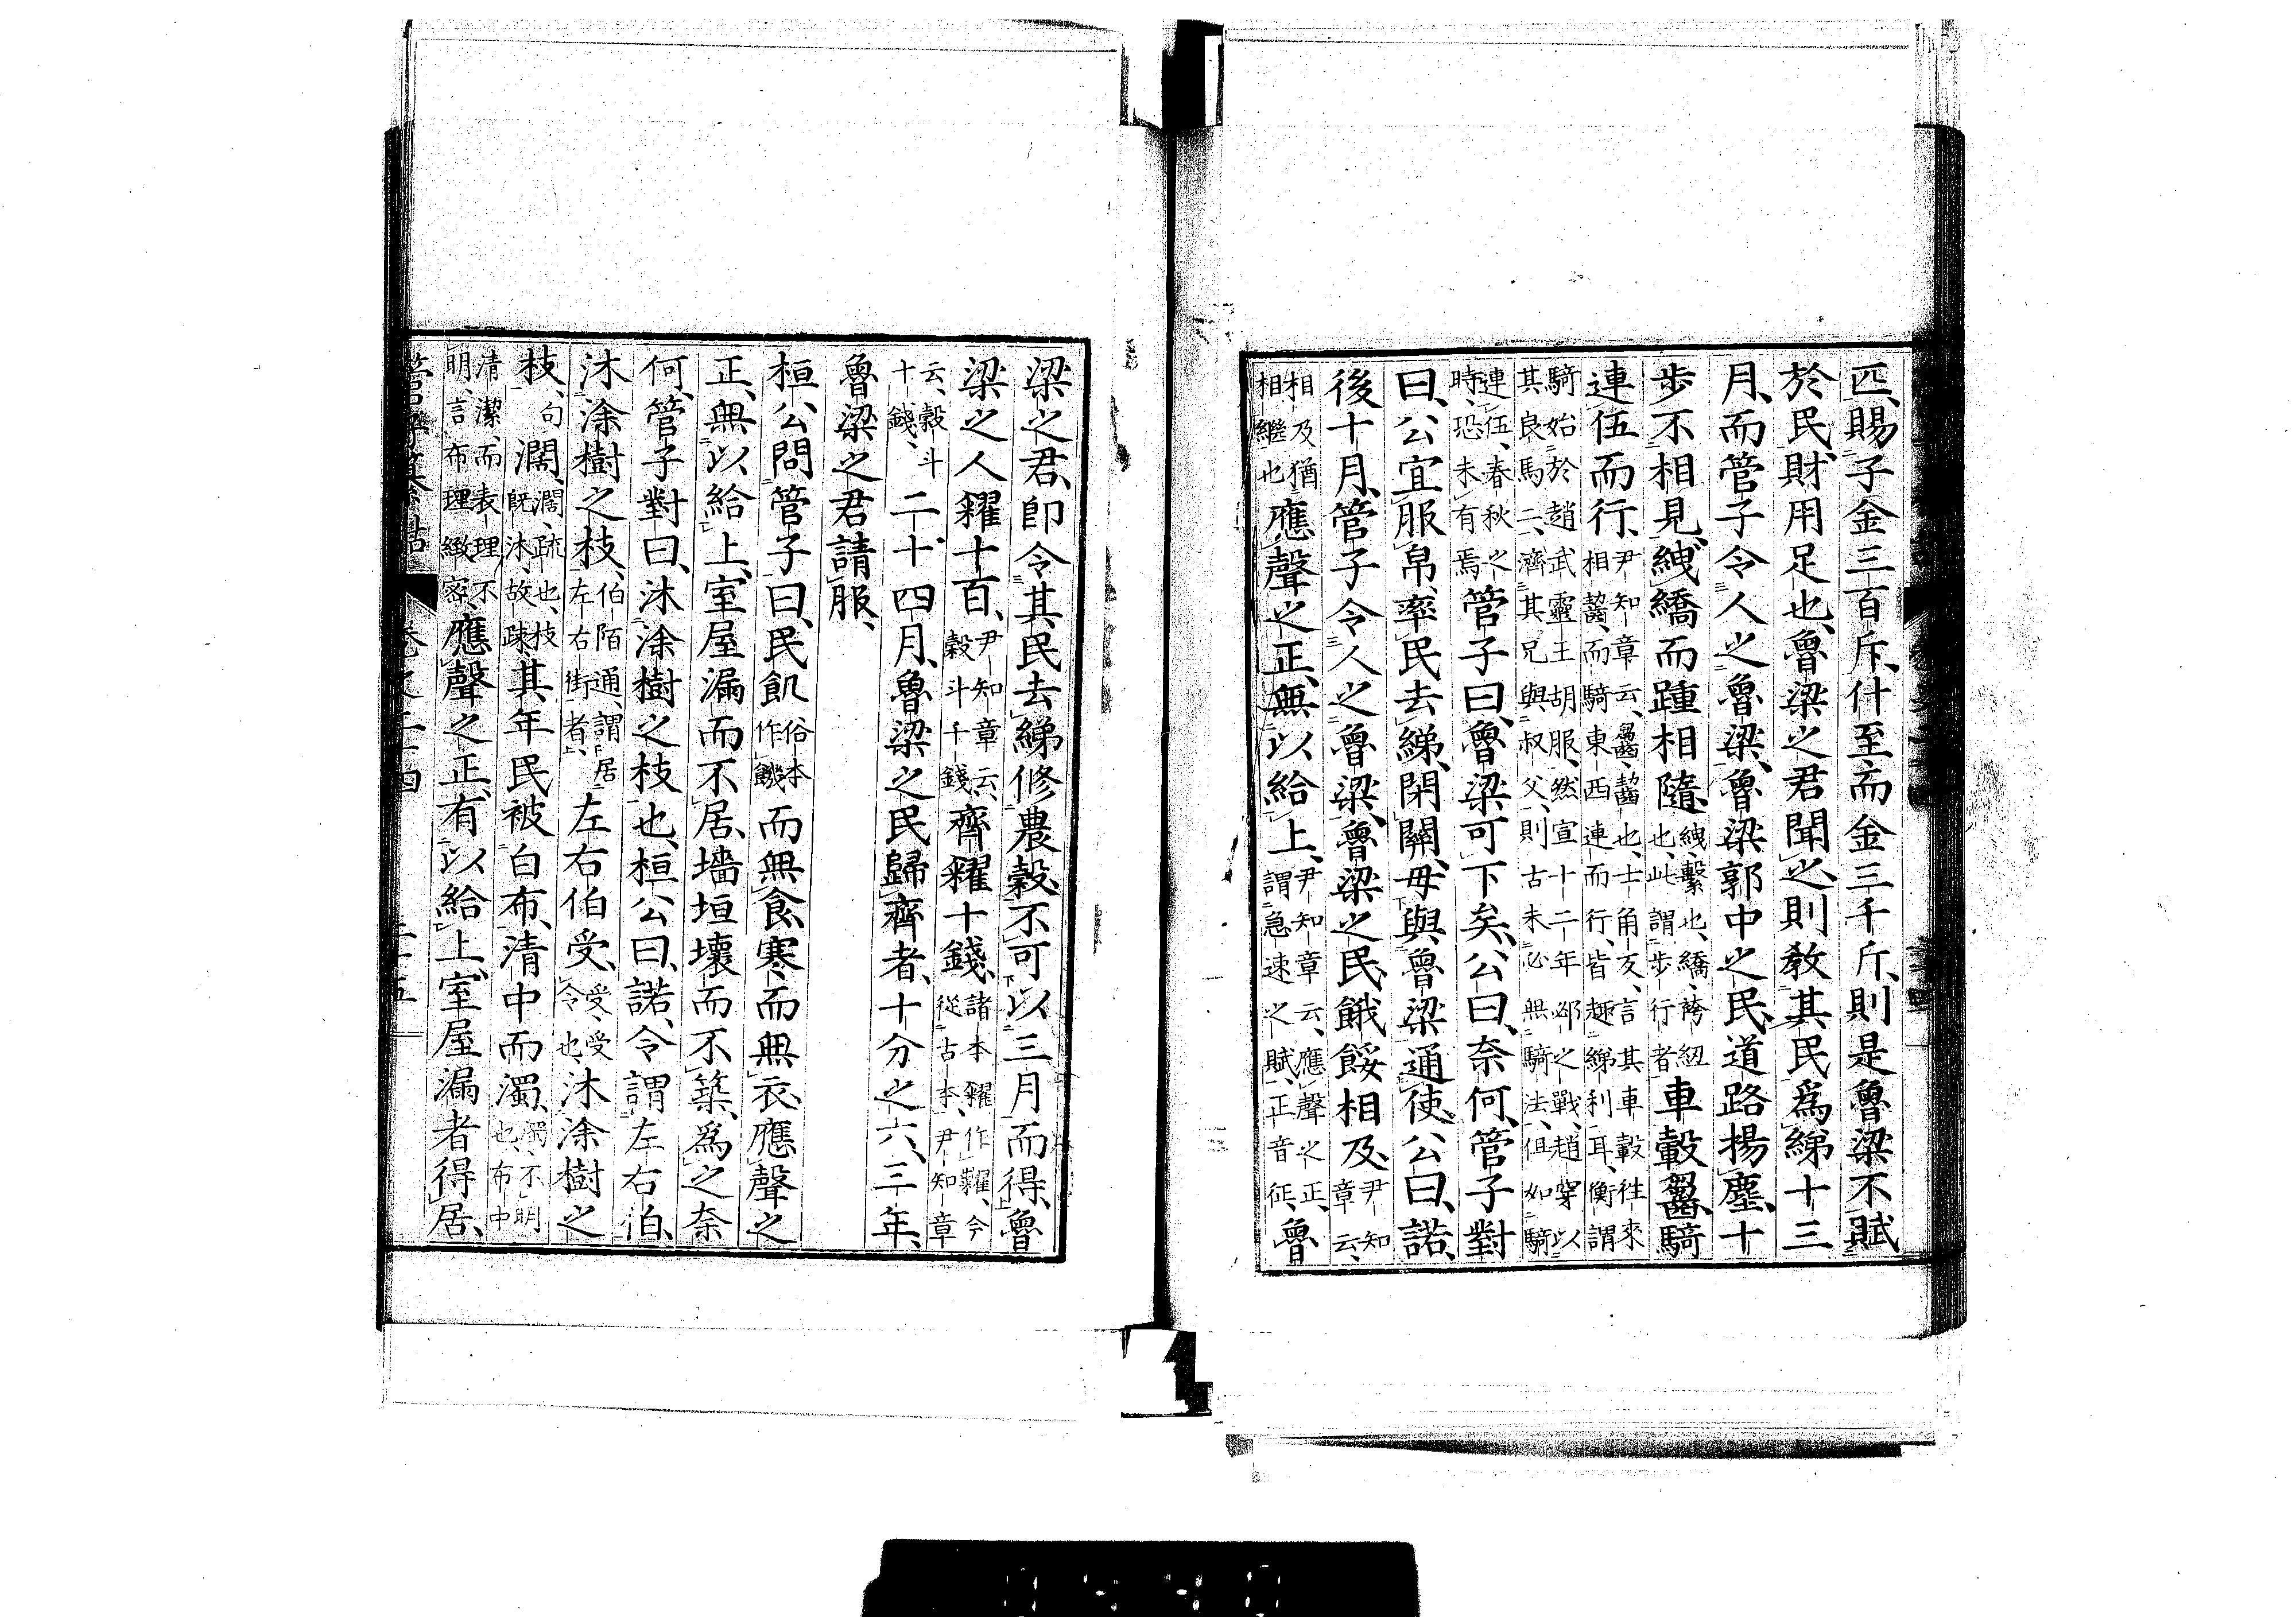 匹、賜子金三百斤、什至而金三千斤、則是魯梁不賦
於民、財用足也、魯梁之君聞之、則敎其民爲綈十三
月、而管子令人之魯梁、魯梁郭中之民、道路揚塵、十
步不相見、絏繑而踵相隨、絏、繫也、繑、袴紐也、此謂步行者車轂齺騎
連伍而行、尹知章云、齺、齧也、士角反、言其車轂往來相齧、而騎東西連而行、皆趣綈利耳、衡謂
騎始於趙武靈王胡服、然宣十二年邲之戰、趙穿以其良馬二、濟其兄與叔父、則古未必無騎法、但如騎
連伍、春秋之時、恐未有焉管子曰、魯梁可下矣、公曰、奈何、管子對
曰、公宜服帛、率民去綈、閉關、毋與魯梁通使、公曰、諾、
後十月、管子令人之魯梁、魯梁之民、餓餒相及、尹知章云、
相及猶相繼也應聲之正、無以給上、尹知章云、應聲之正、謂急速之賦、正音征、魯
梁之君、卽令其民去綈修農穀、不可以三月而得、魯
梁之人糴十百、尹知章云、穀斗千錢、齊糶十錢、諸本糶作糴、今從古本、尹知章
云、穀斗十錢、二十四月、魯梁之民歸齊者、十分之六、三年、
魯梁之君請服、
桓公問管子曰、民飢俗本作饑而無食、寒而無衣、應聲之
正、無以給上、室屋漏而不居、墻垣壞而不築、爲之奈
何、管子對曰、沐涂樹之枝也、桓公曰、諾、令謂左右伯、
沐涂樹之枝、伯陌通、謂居左右街者、左右伯受、受、受令也、沐涂樹之
枝、句闊、闊、疏也、枝旣沐、故疎、其年民被白布、清中而濁、濁、不明也、布中
清潔、而表理不明、言布理緻密、應聲之正、有以給上、室屋漏者得居、